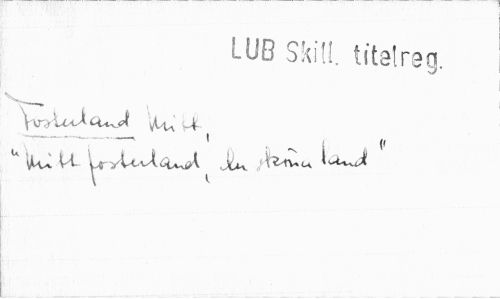 LUB Skill. titelreg.
Fosterland Mitt,
"Mitt fosterland, du sköna land"